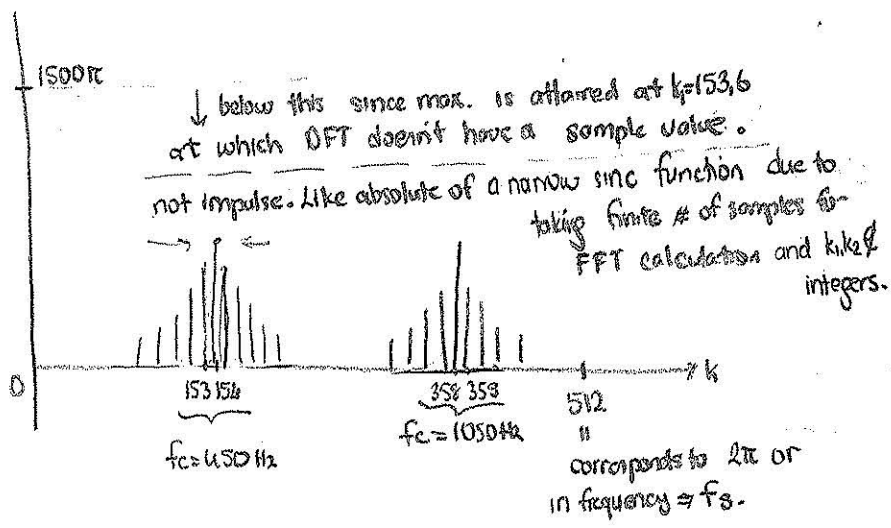 1500π
↓ below this since max. is attained at k₁=153,6
at which DFT doesn't have a sample value.
not impulse. Like absolute of a narrow sinc function due to
taking finite # of samples for
FFT calculation and k₁,k₂ ∉
integers.
0
153 154
358 359
512
k
fc=450Hz
fc=1050Hz
"
corresponds to 2π or
in frequency ⇒ fs.